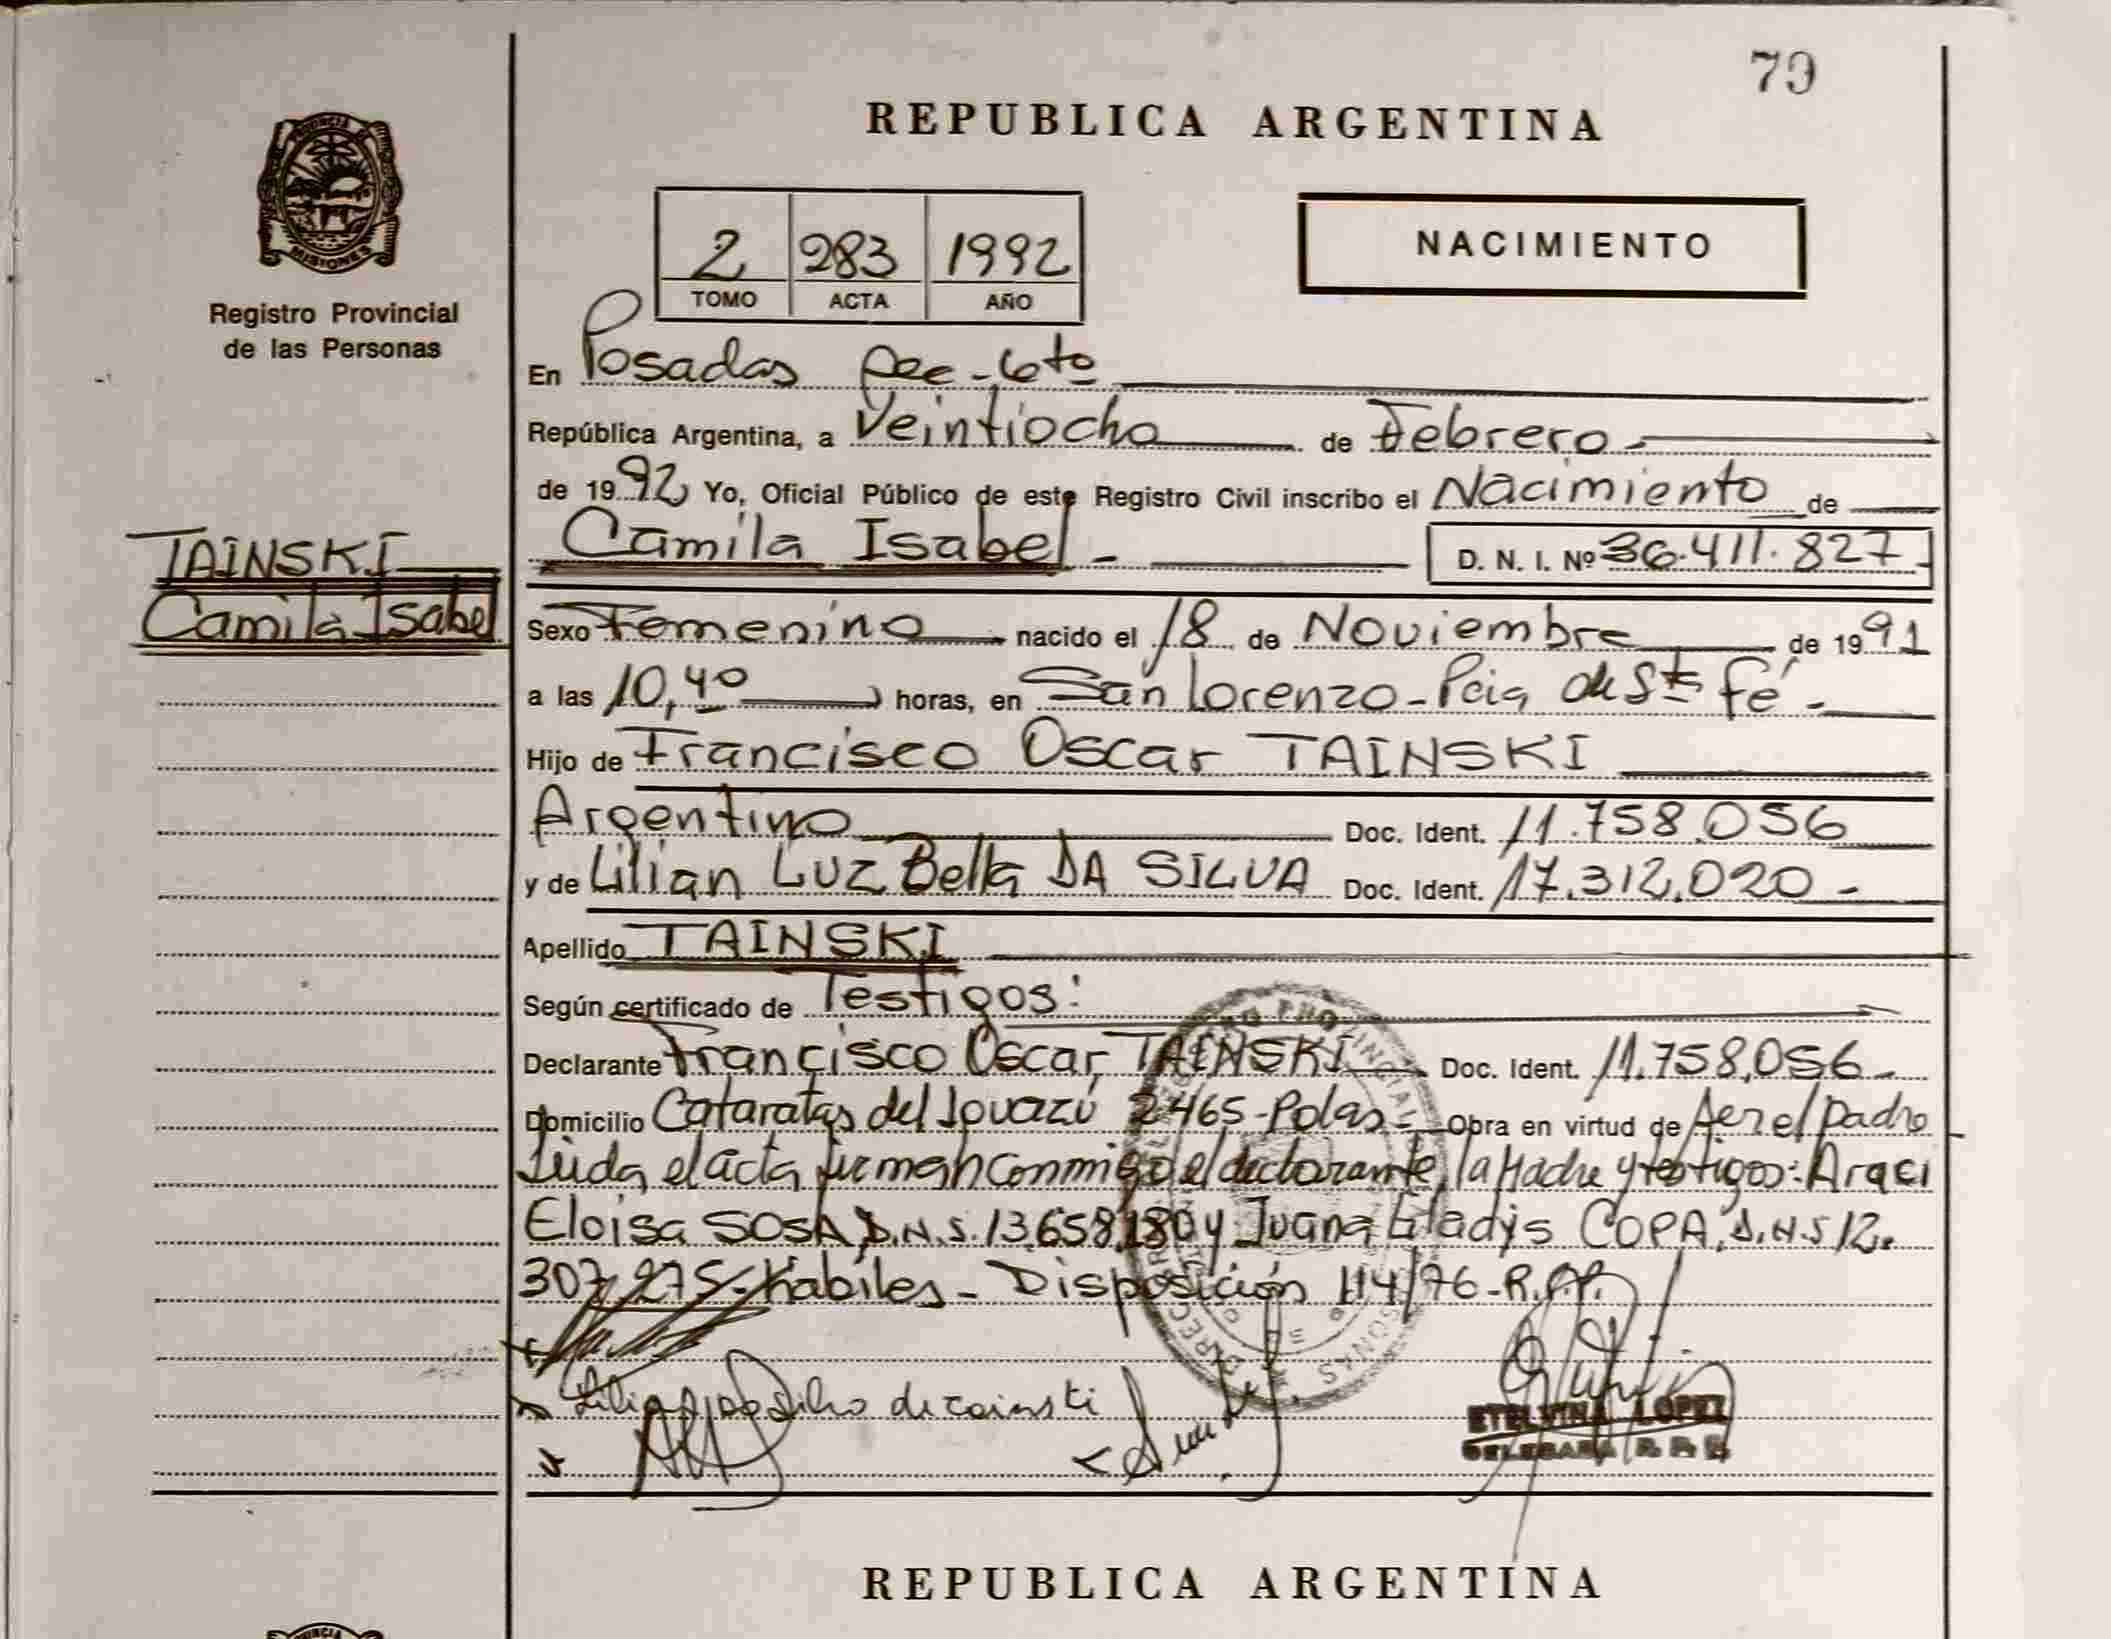 79
REPUBLICA ARGENTINA
PROVINCIA DE
MISIONES
Registro Provincial
de las Personas
2 283 1992
TOMO ACTA AÑO
NACIMIENTO
En Posadas Sec-6to
República Argentina, a Veintiocho de Febrero
de 1992 Yo, Oficial Público de este Registro Civil inscribo el Nacimiento de
Camila Isabel - D. N. I. Nº 36.411.827
TAINSKI
Camila Isabel
Sexo Femenino nacido el 18 de Noviembre de 1991
a las 10,40 horas, en San Lorenzo - Pcia de Sta Fé -
Hijo de Francisco Oscar TAINSKI
Argentino Doc. Ident. 11.758.056
y de Lilian Luz Bella DA SILVA Doc. Ident. 17.312.020 -
Apellido TAINSKI
Según certificado de Testigos:
Declarante Francisco Oscar TAINSKI Doc. Ident. 11.758.056 -
Domicilio Cataratas del Iguazú 2465 - Pdas - Obra en virtud de ser el padre
Leida el acta firman conmigo el declarante, la Madre y testigos: Araci
Eloisa SOSA, D.N.I. 13.658.180 y Juana Gladys COPA, D.N.I 12.
307.275 - Habiles - Disposición 114/76 - R.P.P.
Lilian da Silva de Tainski
ETELVINA LOPEZ
DELEGADA R.P.P.
REPUBLICA ARGENTINA